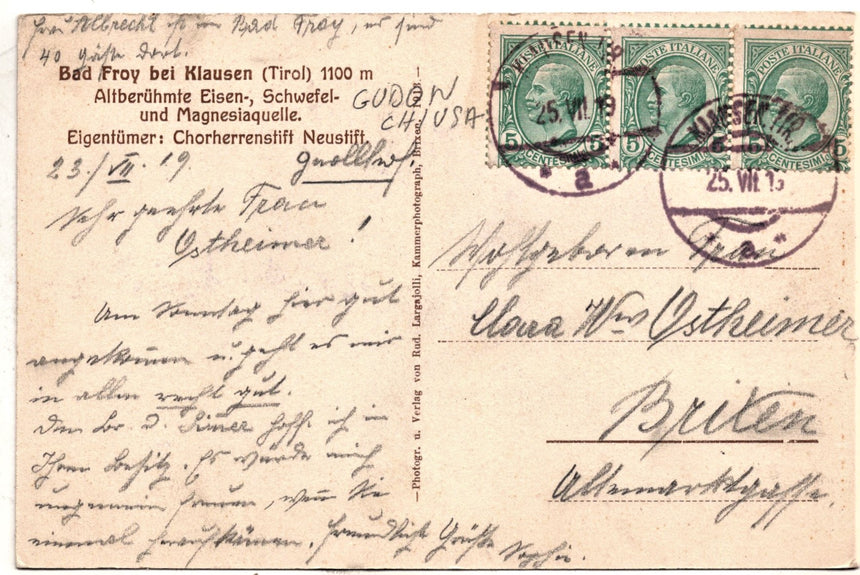 Frau Albrecht ist im Bad Froy, es sind
40 Gäste dort.
Bad Froy bei Klausen (Tirol) 1100 m
Altberühmte Eisen-, Schwefel-
und Magnesiaquelle.
Eigentümer: Chorherrenstift Neustift.
GUDON
CHIUSA
23./VII. 19.
Sehr geehrte Frau
Ostheimer!
Am Sonntag hier gut
angekommen u. geht es mir
in allen recht gut.
Den Br. d. hoff. ich in
Ihrem Besitz. Es würde mich
ungemein freuen, wenn Sie
einmal heraufkämen. Freundliche Grüße
Sophie.
—Photogr. u. Verlag von Rud. Largajolli, Kammerphotograph, Brixen
POSTE ITALIANE
5 CENTESIMI 5
POSTE ITALIANE
5 CENTESIMI 5
POSTE ITALIANE
5 CENTESIMI 5
25. VII. 19
* a *
KLAUSEN
25. VII. 19
* a *
Wohlgeboren Frau
Clara Wwe Ostheimer
Brixen
Altenmarktgasse.